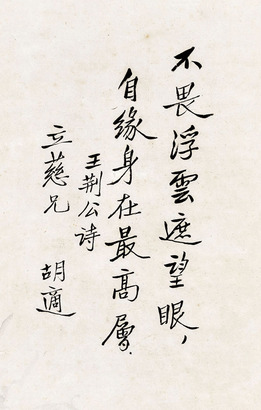 不畏浮雲遮望眼，
自缘身在最高層．
王荆公诗
立慈兄
胡適